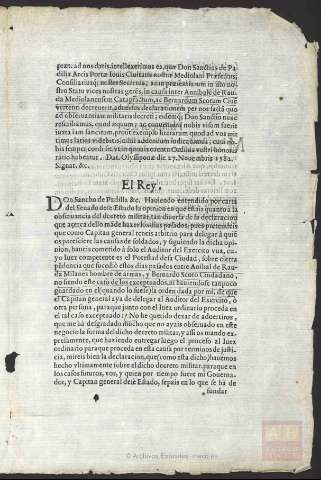 præt. ad nos datis, intelleximus ea, quæ Don Sanctius de Padilla Arcis Portæ Iouis Ciuitatis nostræ Mediolani Præfectus,
Consiliarius, noster Secretus, ac in præsentiarum in isto nostro Statu vices nostras gerēs, in causa inter Annibalē de Rauda
Mediolanensem Catapractum, ac Bernardum Scotum
decreuerit, aduersus declarationem per nos factā quo
ad obseruantiam militaris decreti; eidemq́; Don Sanctio
rescribamus, quod æquum, & conueniens nobis visum fuerit
iuxta iam sancitum, pro vt exemplo literarum, quod ad vos mit
timus latius videbitis
Dat. Olysippone die 17. Nouembris 1582.
Signat. &c.
El Rey.
DOn Sancho de Padilla &c. Hauiendo entendido por carta
del Senado desse Estado la opinion en que estais quanto a la
obseruancia del decreto militar, tan diuersa de la declaracion
que açerca dello màde hazer los dias passados; pues pretendeis
que como Capitan general teneis arbitrio para delegar a quiē
os paresciere las causas de soldados, y siguiendo la dicha opinion,
haueis cometido à solo el Auditor del Exercito vna, cuyo
Iuez competente es el Potestad dessa Ciudad, sobre cierta
pēdencia que sucediò estos dias passados entre Anibal de Rauda
Milanes hombre de armas, y Bernardo Scoto Ciudadano,
no siendo este caso de los exceptuados, ni hauiendose tampoco
guardado en el (quando lo fuesse) la orden dada por mi, de que
el Capitan general aya de delegar al Auditor del Exercito, ò
otra persona, paraque junto con el Iuez ordinario proceda en
el tal caso exceptuado: Y no he querido dexar de aduertiros,
que me hà desgradado mucho que no ayais obseruado en este
negocio la forma del dicho decreto militar, y assi os mando expressamente,
que haziendo entregar luego el processo al Iuez
ordinario paraque proceda en esta causa por terminos de justicia,
mireis bien la declaracion, que (como esta dicho) hauemos
hecho vltimamente sobre el dicho decreto militar, paraque en
los casos futuros, vos, y quien por tiempo fuere mi Gouernador,
y Capitan general desse Estado, sepais en lo que se hà de
fundar
© Archivos Estatales, mecd.es